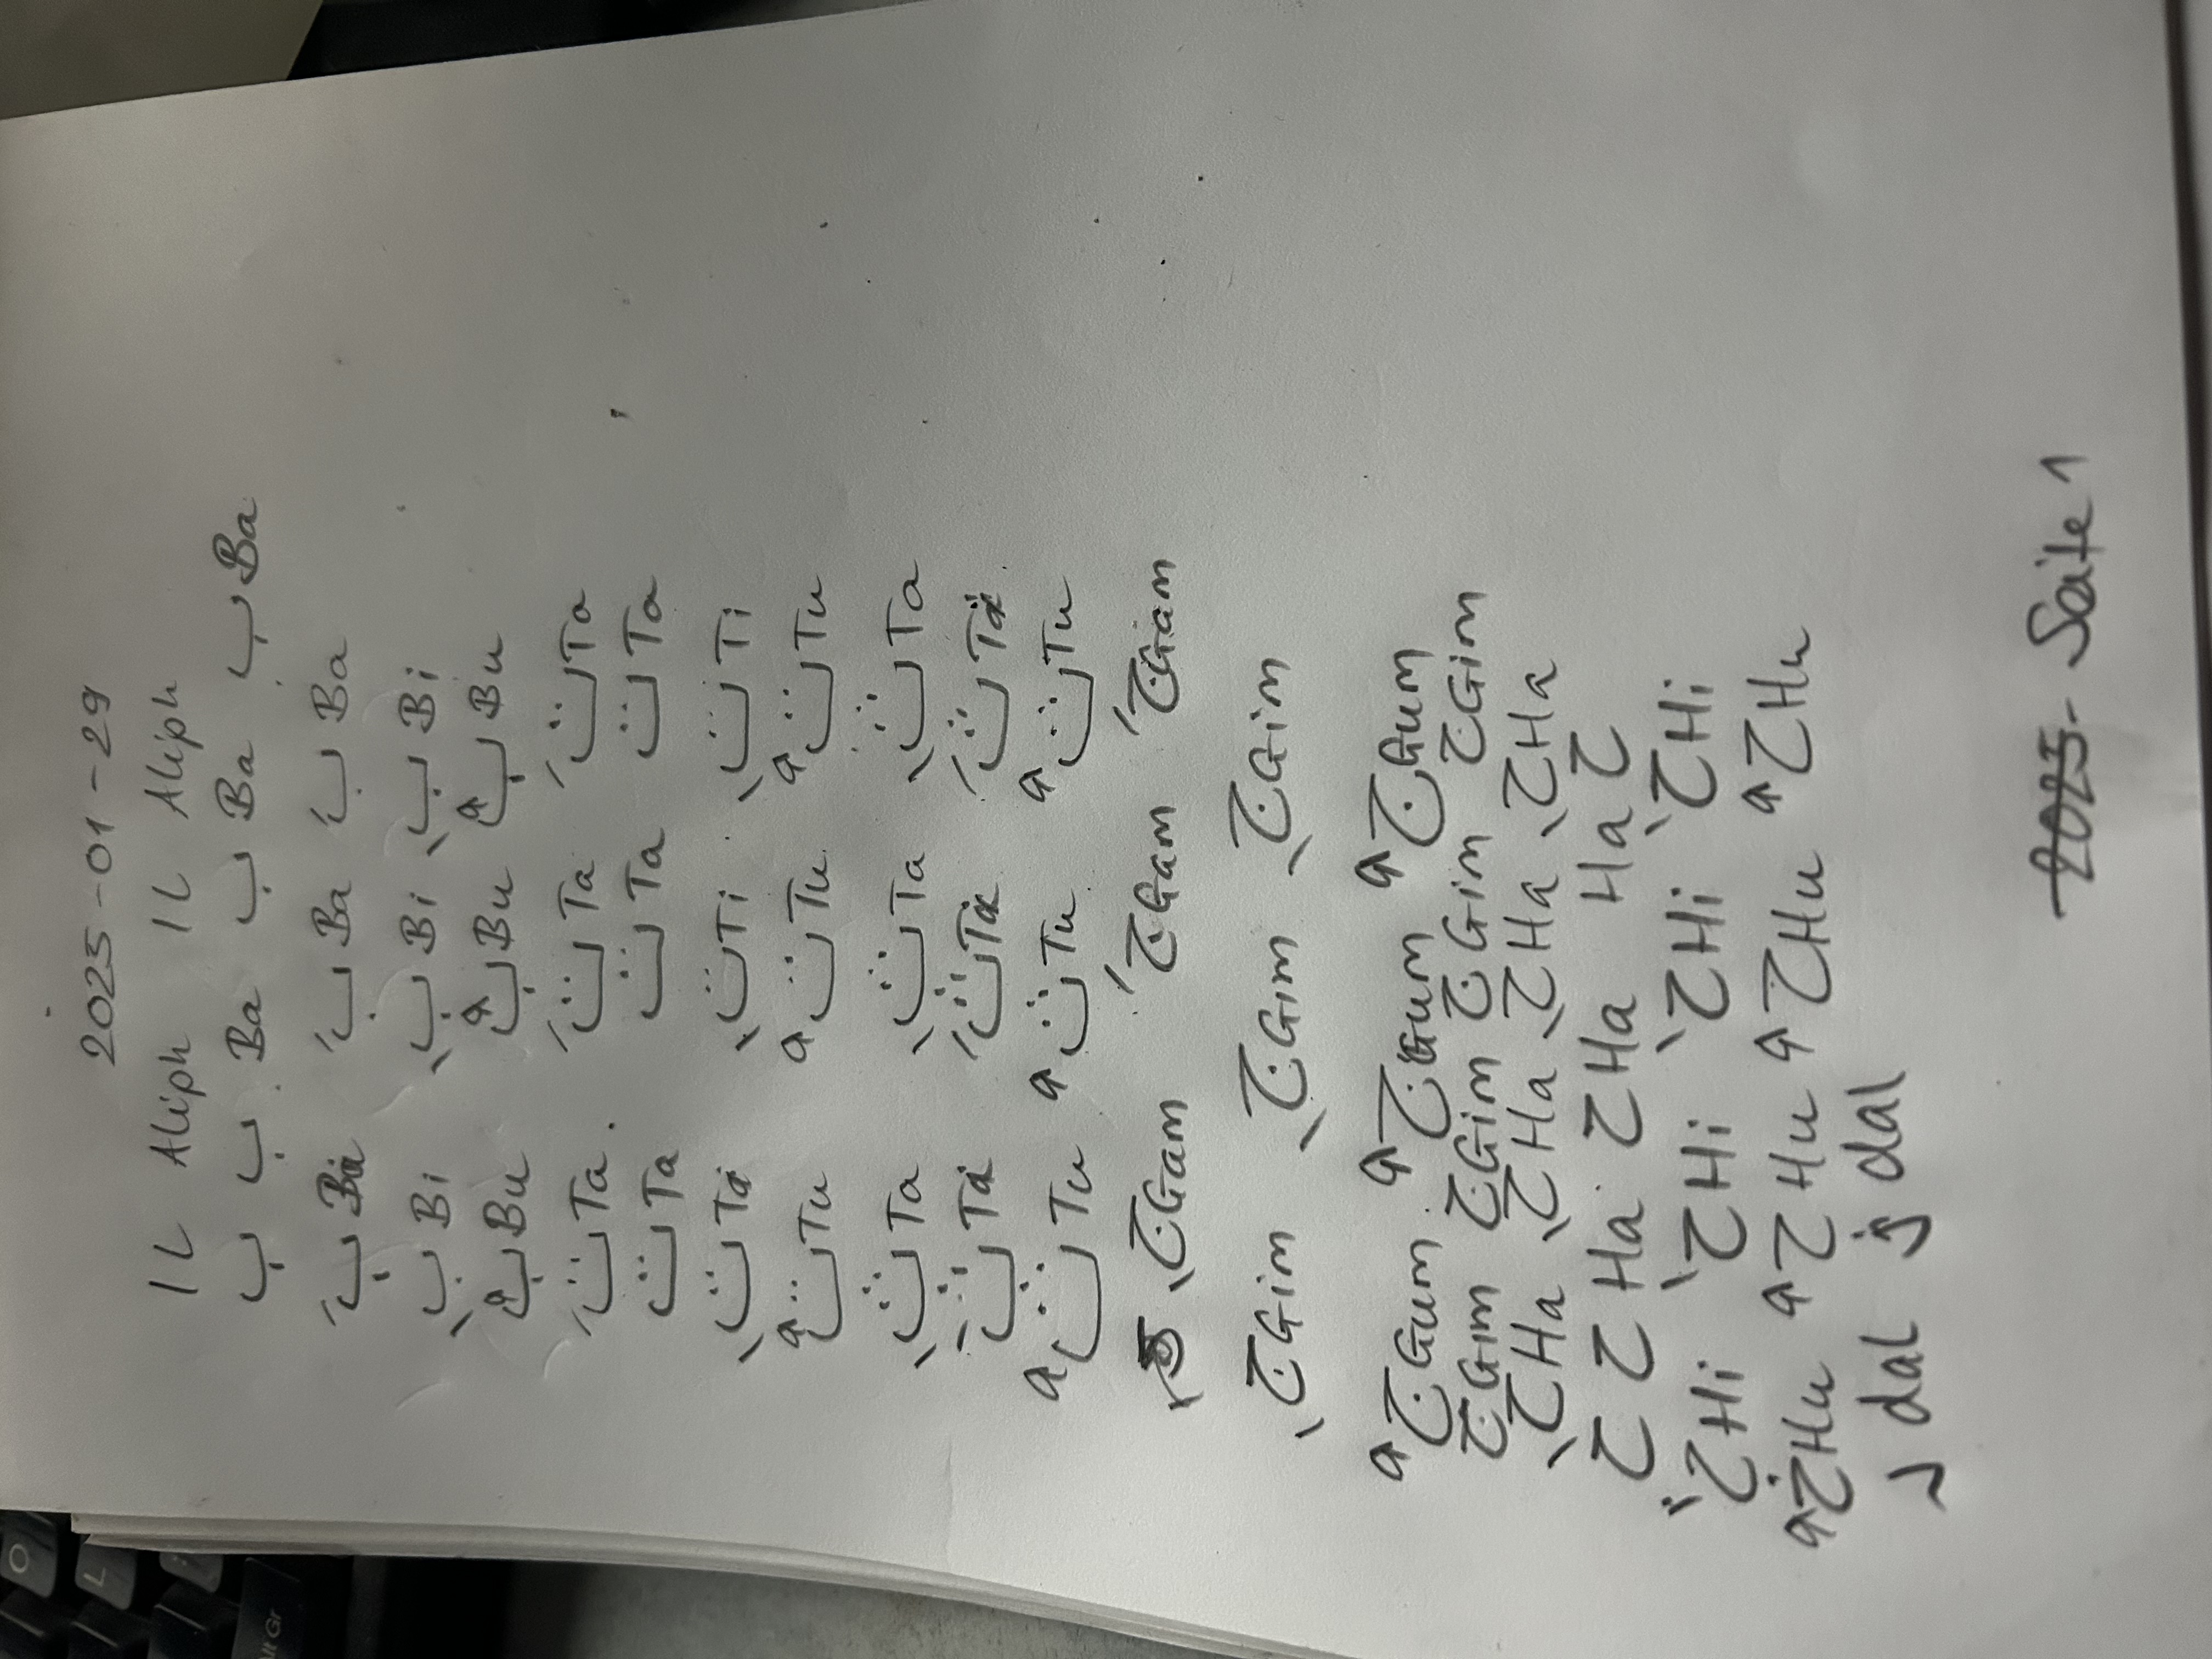 2025-01-29
ا L Aliph ا L Aliph
ب ب Ba ب Ba ب Ba
بَ Ba بَ Ba بَ Ba
بِ Bi بِ Bi بِ Bi
بُ Bu بُ Bu بُ Bu
تَ Ta. تَ Ta تَ Ta
ت Ta ت Ta ت Ta
تِ Ti تِ Ti تِ Ti
تُ Tu تُ Tu. تُ Tu
ثِ Ta ثِ Ta ثِ Ta
ثَ Ta ثَ Ta ثَ Ta
ثُ Tu ثُ Tu ثُ Tu
جِ Gam جَ Gam جَ Gam
جِ Gim جِ Gim جِ Gim
جُ Gum. جُ Gum جُ Gum
ج Gim ج Gim ج Gim ج Gim
حِ Ha حِ Ha حِ Ha حِ Ha
ح ح Ha ح Ha Ha ح
حَ Hi حَ Hi حَ Hi حَ Hi
خُ Hu حُ Hu حُ Hu حُ Hu
د dal ذ dal
2025- Seite 1